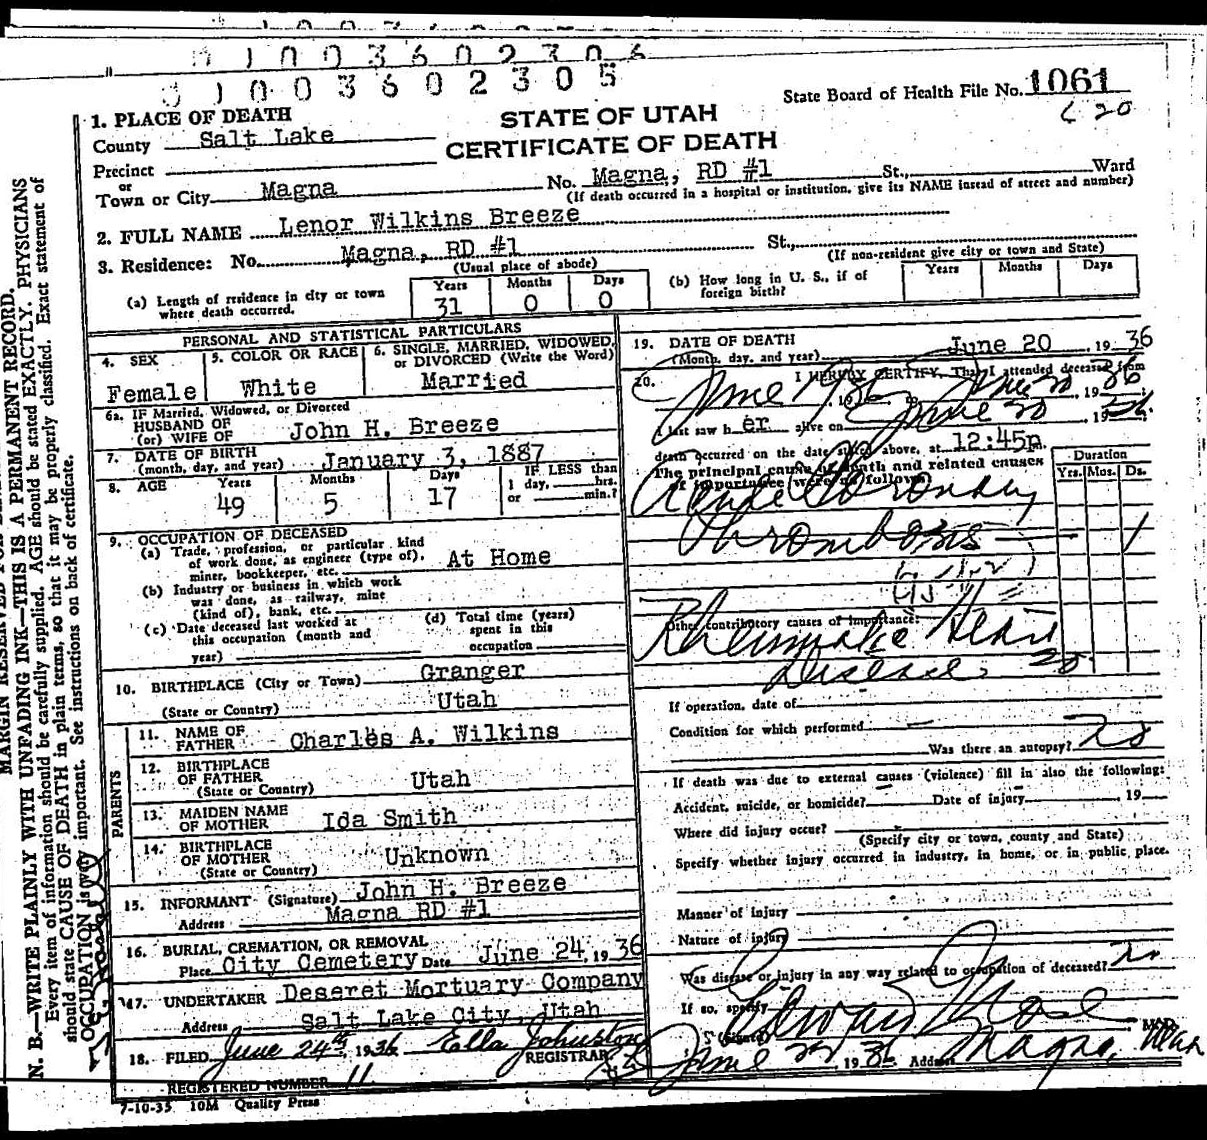 0 1 0 0 3 6 0 2 3 0 6
0 1 0 0 3 6 0 2 3 0 5
State Board of Health File No. 1061
STATE OF UTAH
CERTIFICATE OF DEATH
1. PLACE OF DEATH
County Salt Lake
Precinct
or
Town or City Magna No. Magna, RD #1 St., Ward
(If death occurred in a hospital or institution, give its NAME instead of street and number)
2. FULL NAME Lenor Wilkins Breeze
3. Residence: No. Magna, RD #1 St.,
(Usual place of abode) (If non-resident give city or town and State)
(a) Length of residence in city or town where death occurred. Years 31 Months 0 Days 0
(b) How long in U. S., if of foreign birth? Years Months Days
PERSONAL AND STATISTICAL PARTICULARS
4. SEX Female
5. COLOR OR RACE White
6. SINGLE, MARRIED, WIDOWED, or DIVORCED (Write the Word) Married
6a. IF Married, Widowed, or Divorced
HUSBAND OF
(or) WIFE OF John H. Breeze
7. DATE OF BIRTH
(month, day, and year) January 3, 1887
8. AGE Years 49 Months 5 Days 17 IF LESS than 1 day, hrs. or min.?
9. OCCUPATION OF DECEASED
(a) Trade, profession, or particular kind of work done, as engineer (type of), miner, bookkeeper, etc. At Home
(b) Industry or business in which work was done, as railway, mine (kind of), bank, etc.
(c) Date deceased last worked at this occupation (month and year)
(d) Total time (years) spent in this occupation
10. BIRTHPLACE (City or Town) Granger
(State or Country) Utah
PARENTS
11. NAME OF FATHER Charles A. Wilkins
12. BIRTHPLACE OF FATHER
(State or Country) Utah
13. MAIDEN NAME OF MOTHER Ida Smith
14. BIRTHPLACE OF MOTHER
(State or Country) Unknown
15. INFORMANT (Signature) John H. Breeze
Address Magna RD #1
16. BURIAL, CREMATION, OR REMOVAL
Place City Cemetery Date June 24, 1936
17. UNDERTAKER Deseret Mortuary Company
Address Salt Lake City, Utah
18. FILED June 24th, 1936 Ella Johnston
REGISTRAR
REGISTERED NUMBER 11
7-10-35 10M Quality Press
19. DATE OF DEATH
(Month, day, and year) June 20, 1936
20. I HEREBY CERTIFY, That I attended deceased from
June 19 36 to June 20 1936
I last saw her alive on June 20 1936
death occurred on the date stated above, at 12:45p.
The principal cause of death and related causes of importance were as follows:
Duration
Yrs. Mos. Ds.
Acute Coronary
Thrombosis 1
Other contributory causes of importance:
Rheumatic Heart
Disease 20
If operation, date of
Condition for which performed
Was there an autopsy? No
If death was due to external causes (violence) fill in also the following:
Accident, suicide, or homicide? Date of injury , 19
Where did injury occur?
(Specify city or town, county and State)
Specify whether injury occurred in industry, in home, or in public place.
Manner of Injury
Nature of injury
Was disease or injury in any way related to occupation of deceased? No
If so, specify
(Signed) Edward M
June 22 1936 Address Magna, Utah
MARGIN RESERVED FOR
N. B.—WRITE PLAINLY WITH UNFADING INK—THIS IS A PERMANENT RECORD.
Every item of information should be carefully supplied. AGE should be stated EXACTLY. PHYSICIANS
should state CAUSE OF DEATH in plain terms, so that it may be properly classified. Exact statement of
OCCUPATION is very important. See instructions on back of certificate.